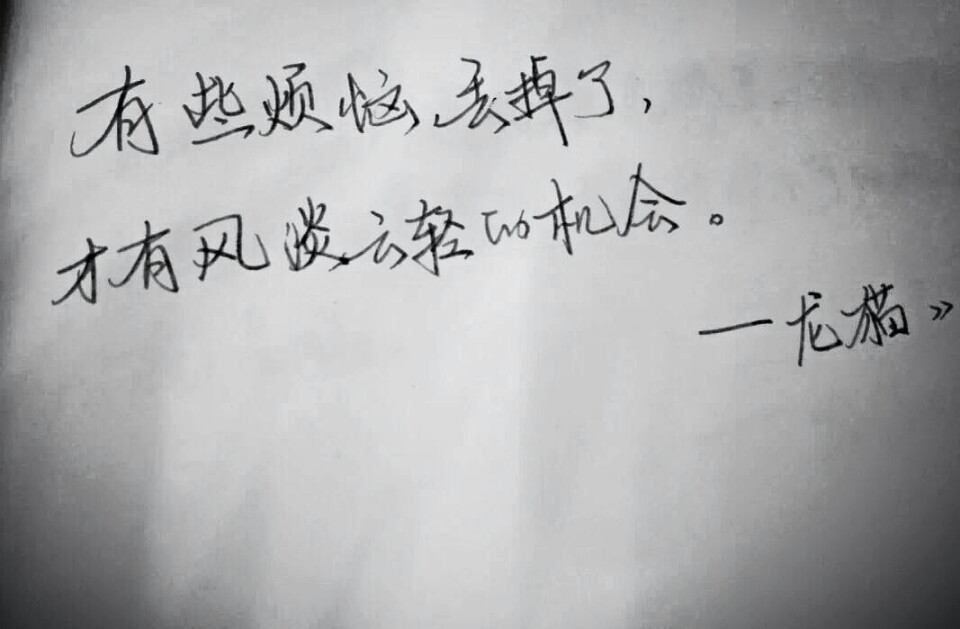 有些烦恼，丢掉了，
才有风淡云轻的机会。
—龙猫》